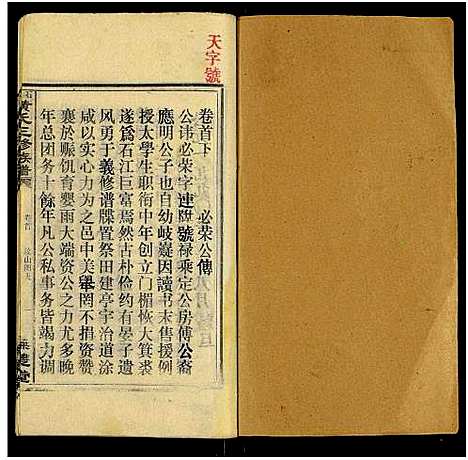 天字號
卷首下
必荣公傳
公讳必荣字連陞號禄乘定公房傅公裔
應明公子也自幼岐嶷因讀书未售援例
授太學生职衔中年创立门楣恢大箕裘
遂為石江巨富焉然古朴俭约有晏子遗
风勇于義修谱牒置祭田建亭宇治道涂
咸以实心力为之邑中美舉罔不捐资赞
襄於赈饥育婴雨大端资公之力尤多晚
年总团务十餘年凡公私事务皆竭力调
氏三修族譜
卷首